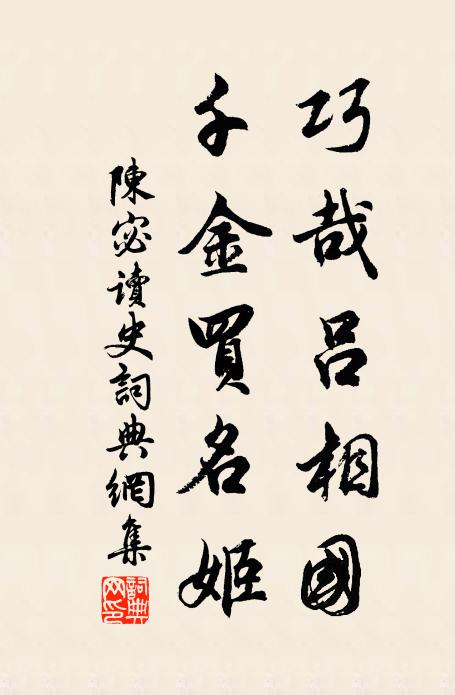 巧哉呂相國
千金買名姬
陳宓讀史詞典網集
詞典网印